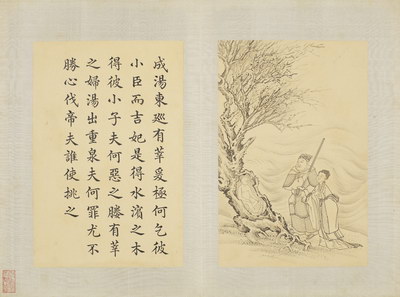 成湯東廵有莘爰極何乞彼
小臣而吉妃是得水濱之木
得彼小子夫何惡之媵有莘
之婦湯出重泉夫何罪尤不
勝心伐帝夫誰使挑之